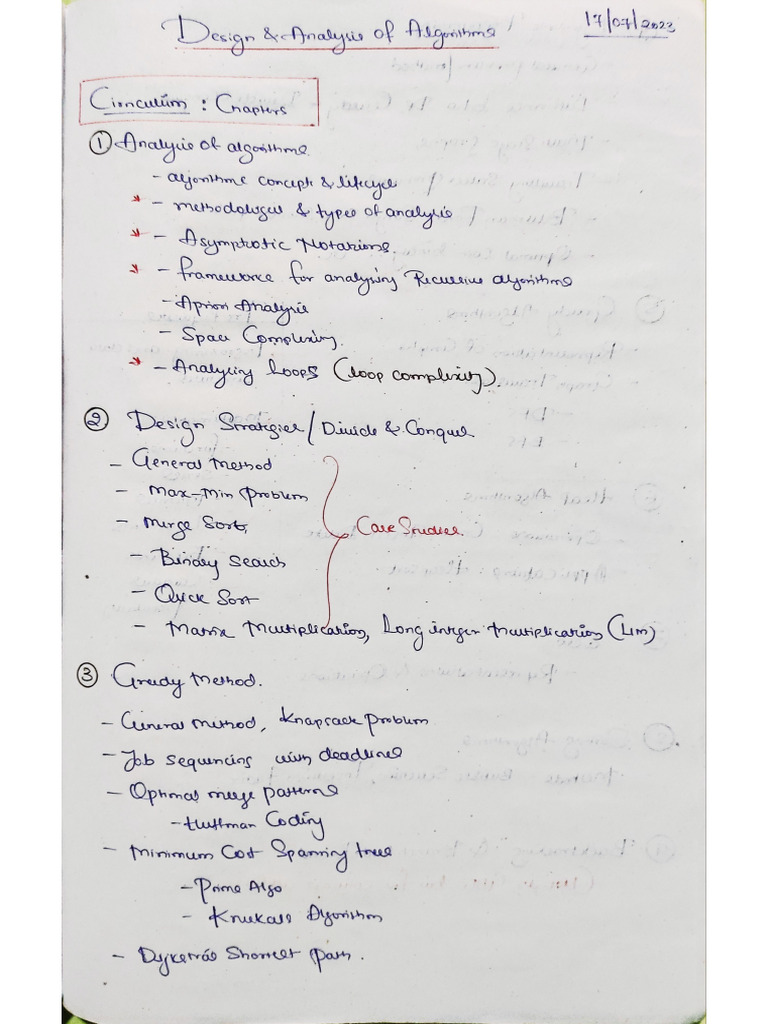 Design & Analysis of Algorithms
17/07/2023
Cirriculum : Chapters
① Analysis of algorithms.
- algorithms concept & lifecycle
* - methodologies & types of analysis
* - Asymptotic Notations.
* - framework for analysing Recursive algorithms
- Apriori Analysis
- Space Complexity.
* - Analysing Loops (loop complexity).
② Design Strategies / Divide & Conquer
- General Method
- Max-Min Problem
- Merge Sort,
Case Studies.
- Binary Search
- Quick Sort
- Matrix Multiplication, Long integer Multiplication (LIM)
③ Greedy Method.
- General method, Knapsack problem
- Job sequencing with deadlines
- Optimal merge patterns
- Huffman Coding
- Minimum Cost Spanning tree
- Prims Algo
- Kruskals Algorithm
- Dijkstras Shortest Path.